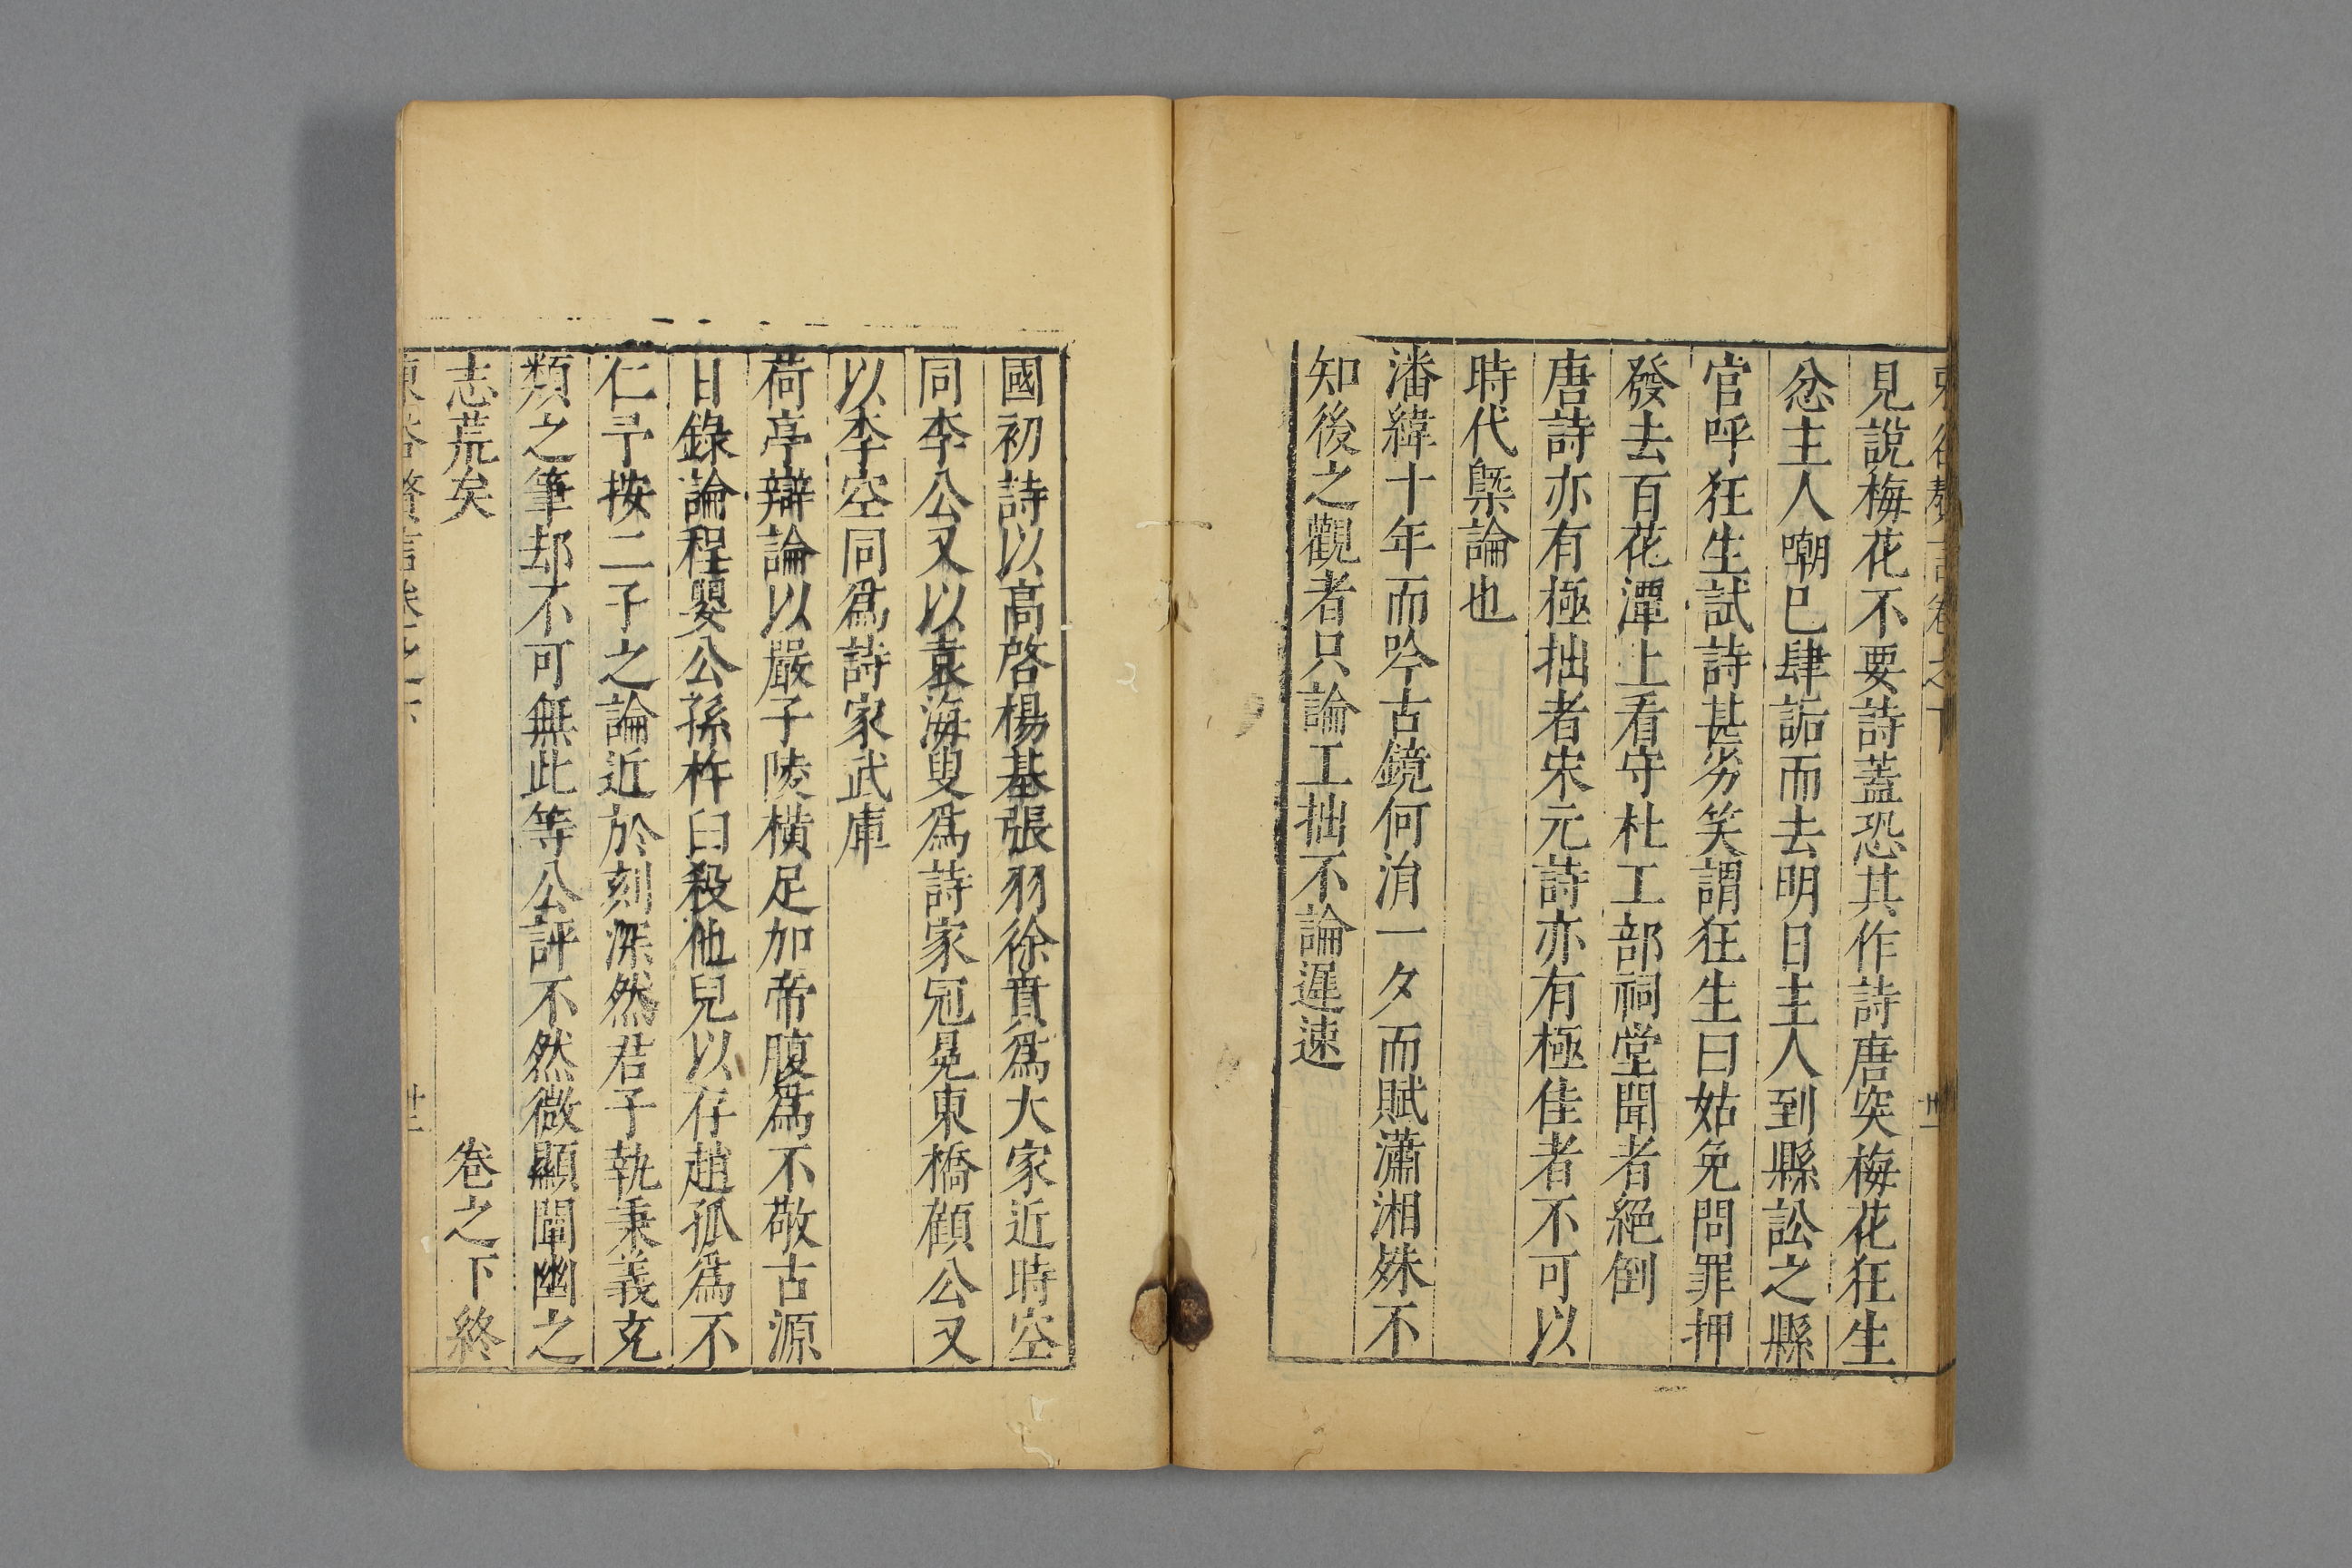 見說梅花不要詩蓋恐其作詩唐突梅花狂生
忿主人嘲已肆詬而去明日主人到縣訟之縣
官呼狂生試詩甚劣笑謂狂生曰姑免問罪押
發去百花潭上看守杜工部祠堂聞者絕倒
唐詩亦有極拙者宋元詩亦有極佳者不可以
時代槩論也
潘緯十年而吟古鏡何涓一夕而賦瀟湘殊不
知後之觀者只論工拙不論遲速
國初詩以高啓楊基張羽徐賁爲大家近時空
同李公又以袁海叟爲詩家冠冕東橋顧公又
以李空同爲詩家武庫
荷亭辯論以嚴子陵橫足加帝腹爲不敬古源
日錄論程嬰公孫杵臼殺他兒以存趙孤爲不
仁予按二子之論近於刻深然君子執秉義充
類之筆却不可無此等公評不然微顯闡幽之
志荒矣
卷之下終